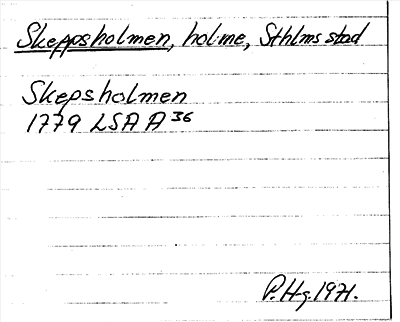 Skeppsholmen, holme, Sthlms stad
Skepsholmen
1779 LSA A 36
P. Hg. 1971.